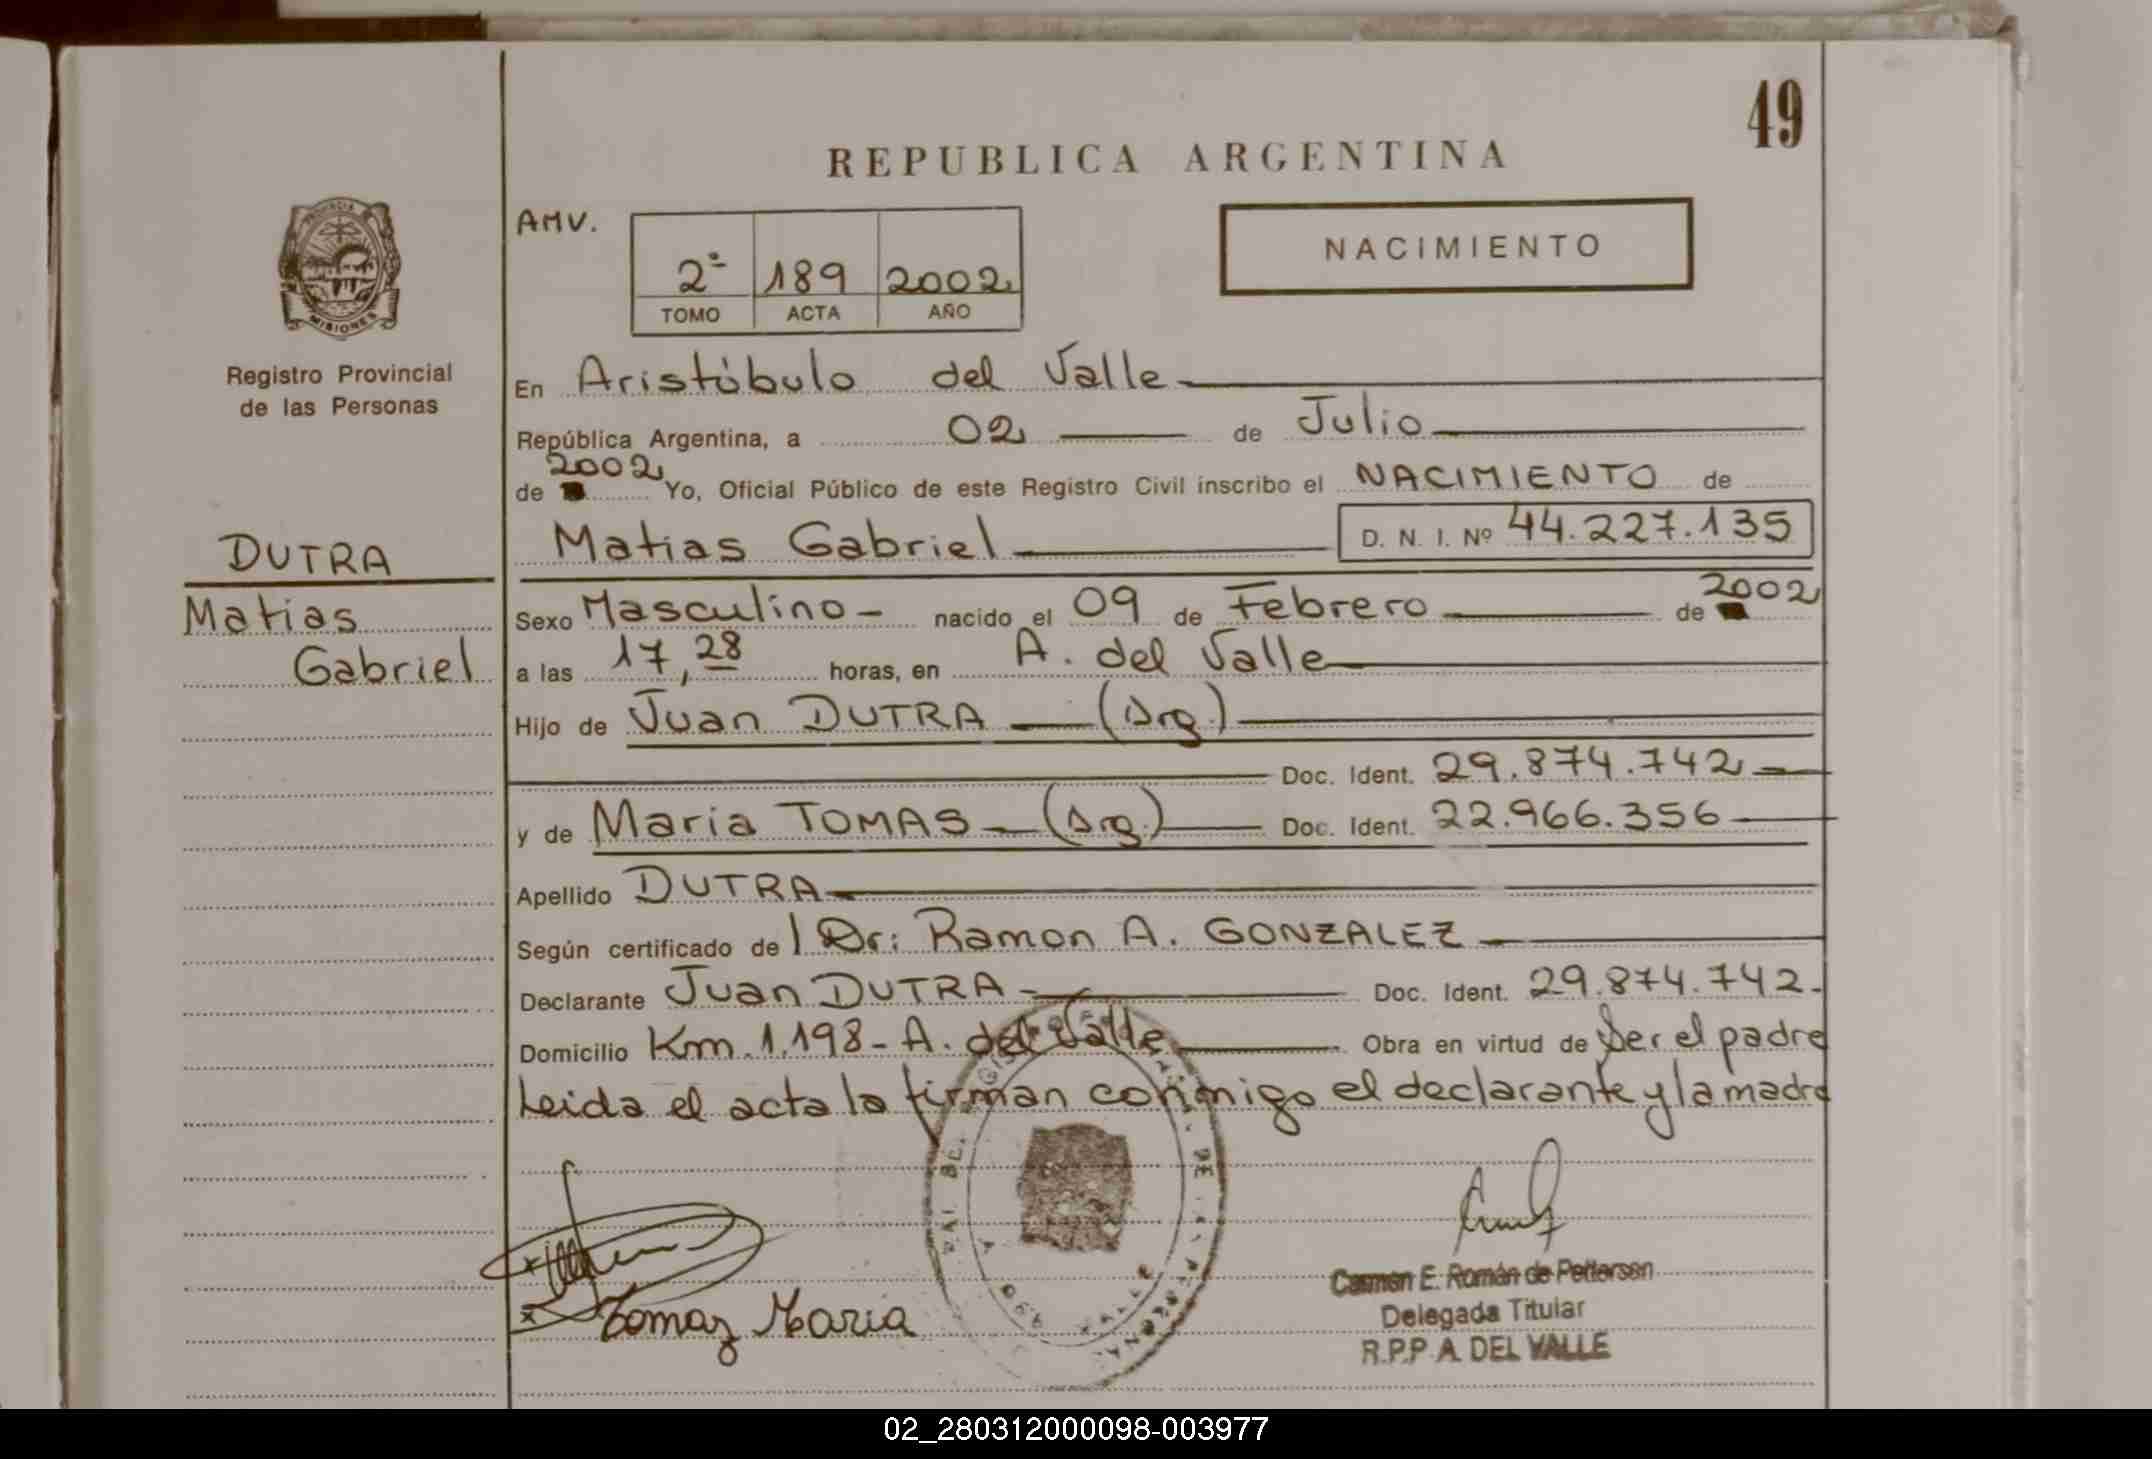 49
REPUBLICA ARGENTINA
PROVINCIA DE
MISIONES
Registro Provincial
de las Personas
AMV.
2º 189 2002
TOMO ACTA AÑO
NACIMIENTO
En Aristóbulo del Valle
República Argentina, a 02 de Julio
2002
de Yo, Oficial Público de este Registro Civil inscribo el NACIMIENTO de
Matias Gabriel D. N. I. Nº 44.227.135
DUTRA
Matias
Gabriel
Sexo Masculino - nacido el 09 de Febrero de 2002
a las 17,28 horas, en A. del Valle
Hijo de Juan DUTRA (Arg.)
Doc. Ident. 29.874.742
y de Maria TOMAS (Arg.) Doc. Ident. 22.966.356
Apellido DUTRA
Según certificado de Dr: Ramon A. GONZALEZ
Declarante Juan DUTRA - Doc. Ident. 29.874.742.
Domicilio Km. 1.198 - A. del Valle Obra en virtud de Ser el padre
Leida el acta la firman conmigo el declarante y la madre
Tomaz Maria
Carmen E. Román de Petterson
Delegada Titular
R.P.P A. DEL VALLE
02_280312000098-003977